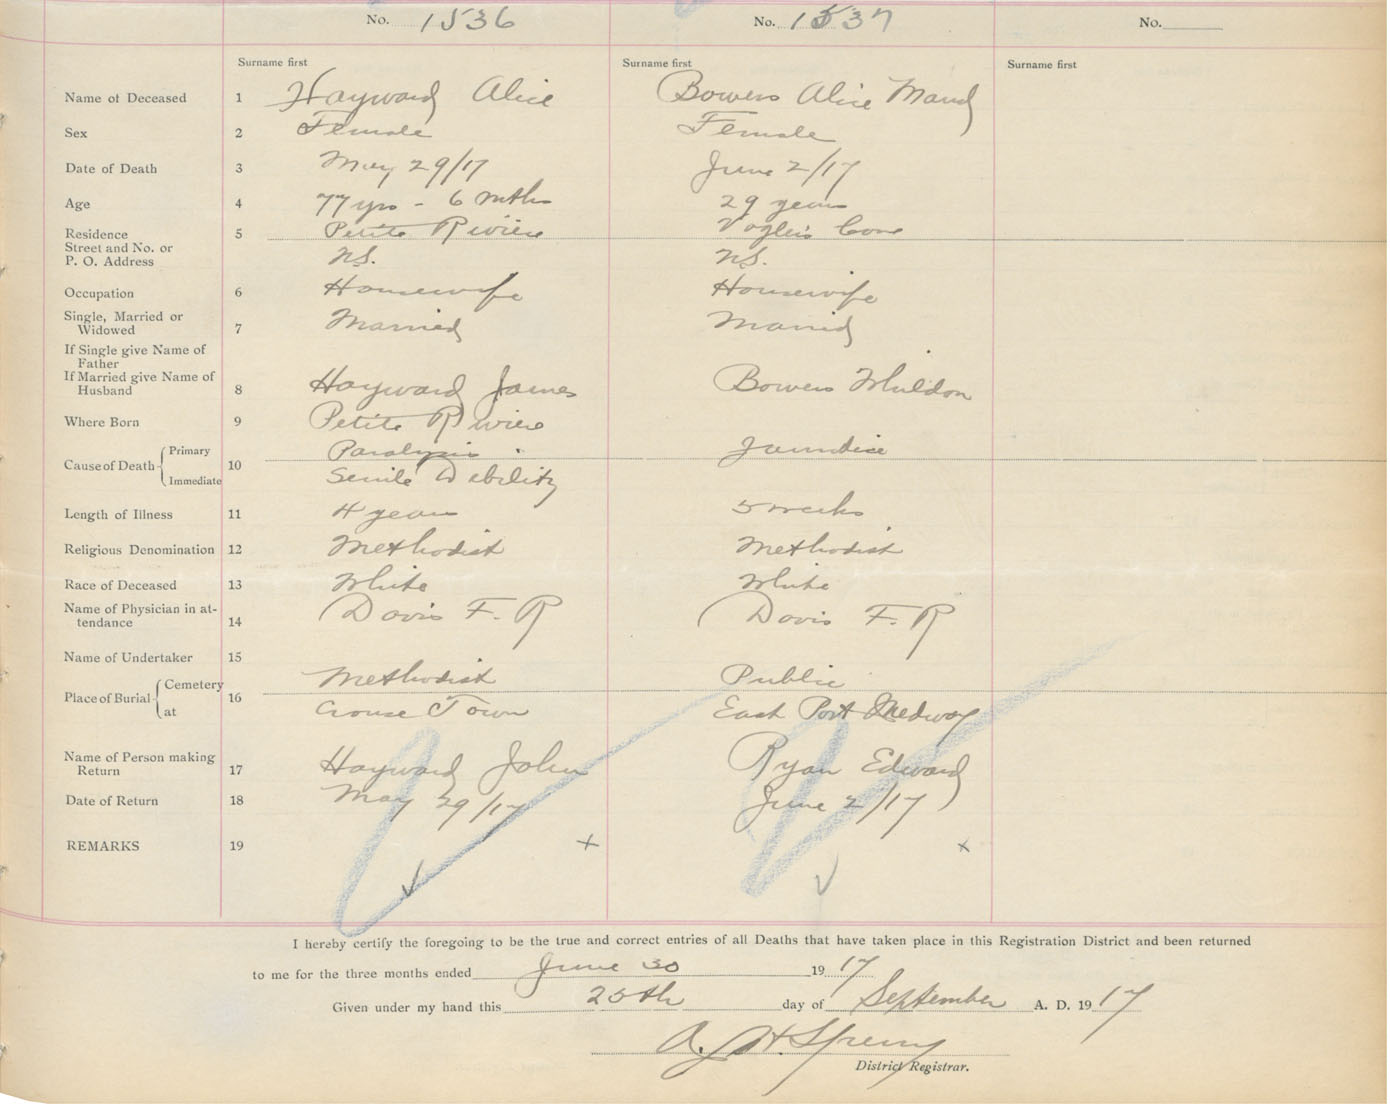 No. 1536 No. 1537 No.
Surname first Surname first Surname first
Name of Deceased 1 Hayward Alice Bowers Alice Maud
Sex 2 Female Female
Date of Death 3 May 29/17 June 2/17
Age 4 77 yrs - 6 mths 29 years
Residence 5 Petite Riviere Voglers Cove
Street and No. or
P. O. Address N.S. N.S.
Occupation 6 Housewife Housewife
Single, Married or
Widowed 7 Married Married
If Single give Name of
Father
If Married give Name of
Husband 8 Hayward James Bowers
Where Born 9 Petite Riviere
Cause of Death Primary 10 Paralysis Jaundice
Immediate Senile Debility
Length of Illness 11 4 years 5 weeks
Religious Denomination 12 Methodist Methodist
Race of Deceased 13 White White
Name of Physician in at-
tendance 14 Davis F. R Davis F. R
Name of Undertaker 15
Place of Burial Cemetery 16 Methodist Public
at Crouse Town East Port Medway
Name of Person making
Return 17 Hayward John Ryan Edward
Date of Return 18 May 29/17 June 2/17
REMARKS 19 + x
I hereby certify the foregoing to be the true and correct entries of all Deaths that have taken place in this Registration District and been returned
to me for the three months ended June 30 1917
Given under my hand this 25th day of September A. D. 1917
District Registrar.